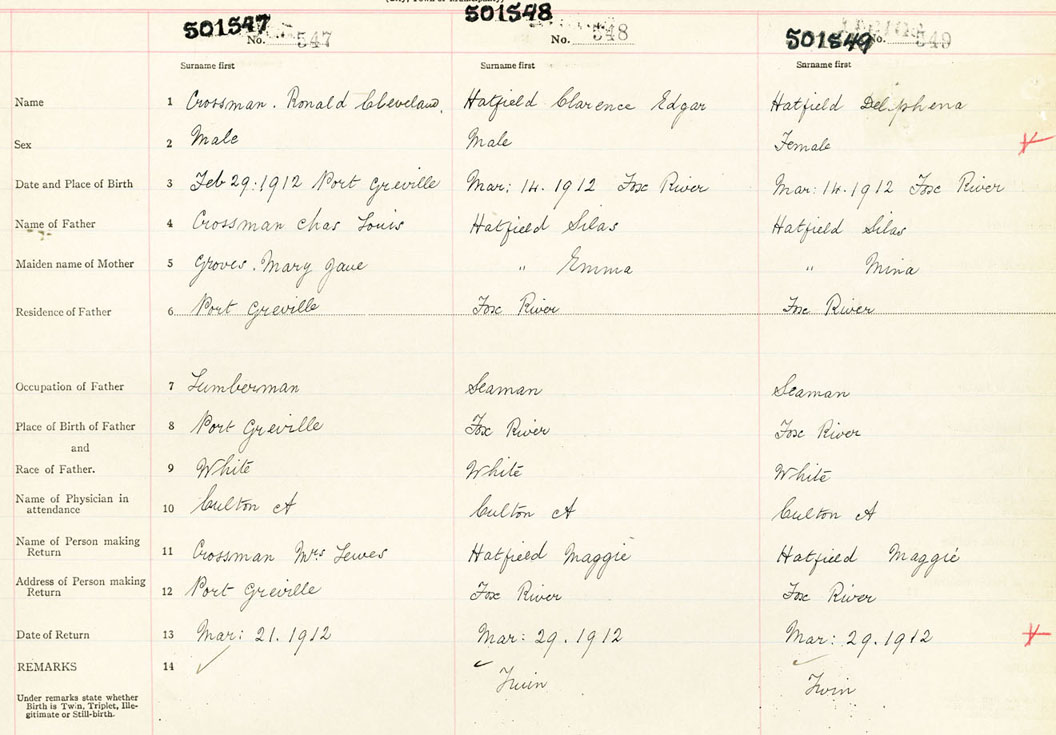 (City, Town or Municipality)
501547 501548 501549
No. 547 No. 548 No. 549
Surname first Surname first Surname first
Name 1 Crossman. Ronald Cleveland. Hatfield Clarence Edgar Hatfield Delphena
Sex 2 Male Male Female
Date and Place of Birth 3 Feb 29:1912 Port Greville Mar: 14. 1912 Fox River Mar: 14. 1912 Fox River
Name of Father 4 Crossman Chas Louis Hatfield Silas Hatfield Silas
Maiden name of Mother 5 Groves. Mary Jane " Emma " Mina
Residence of Father 6 Port Greville Fox River Fox River
Occupation of Father 7 Lumberman Seaman Seaman
Place of Birth of Father 8 Port Greville Fox River Fox River
and
Race of Father. 9 White White White
Name of Physician in
attendance 10 Culton A Culton A Culton A
Name of Person making
Return 11 Crossman Mrs Lewes Hatfield Maggie Hatfield Maggie
Address of Person making
Return 12 Port Greville Fox River Fox River
Date of Return 13 Mar: 21. 1912 Mar: 29. 1912 Mar: 29. 1912
REMARKS 14
Twin Twin
Under remarks state whether
Birth is Twin, Triplet, Ille-
gitimate or Still-birth.